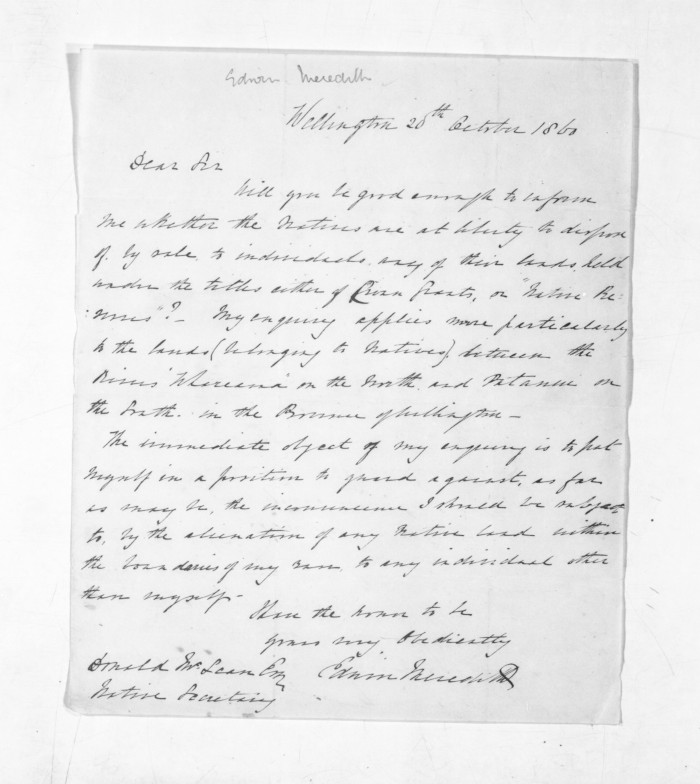 Edwin Meredith
Wellington 20th October 1860
Dear Sir
Will you be good enough to inform
me whether the Natives are at liberty to dispose
of, by sale to individuals any of their lands held
under the titles either of Crown Grants, or "Native Re:
:serves"? - My enquiry applies more particularly
to the lands (belonging to Natives) between the
Rivers Whareama on the North and Pahaua on
the South. in the Province of Wellington -
The immediate object of my enquiry is to put
myself in a position to guard against, as far
as may be, the inconvenience I should be subject
to, by the alienation of any Native land within
the boundaries of my run to any individual other
than myself -
Have the honor to be
yours very Obediently
Edwin Meredith
Donald McLean Esq
Native Secretary